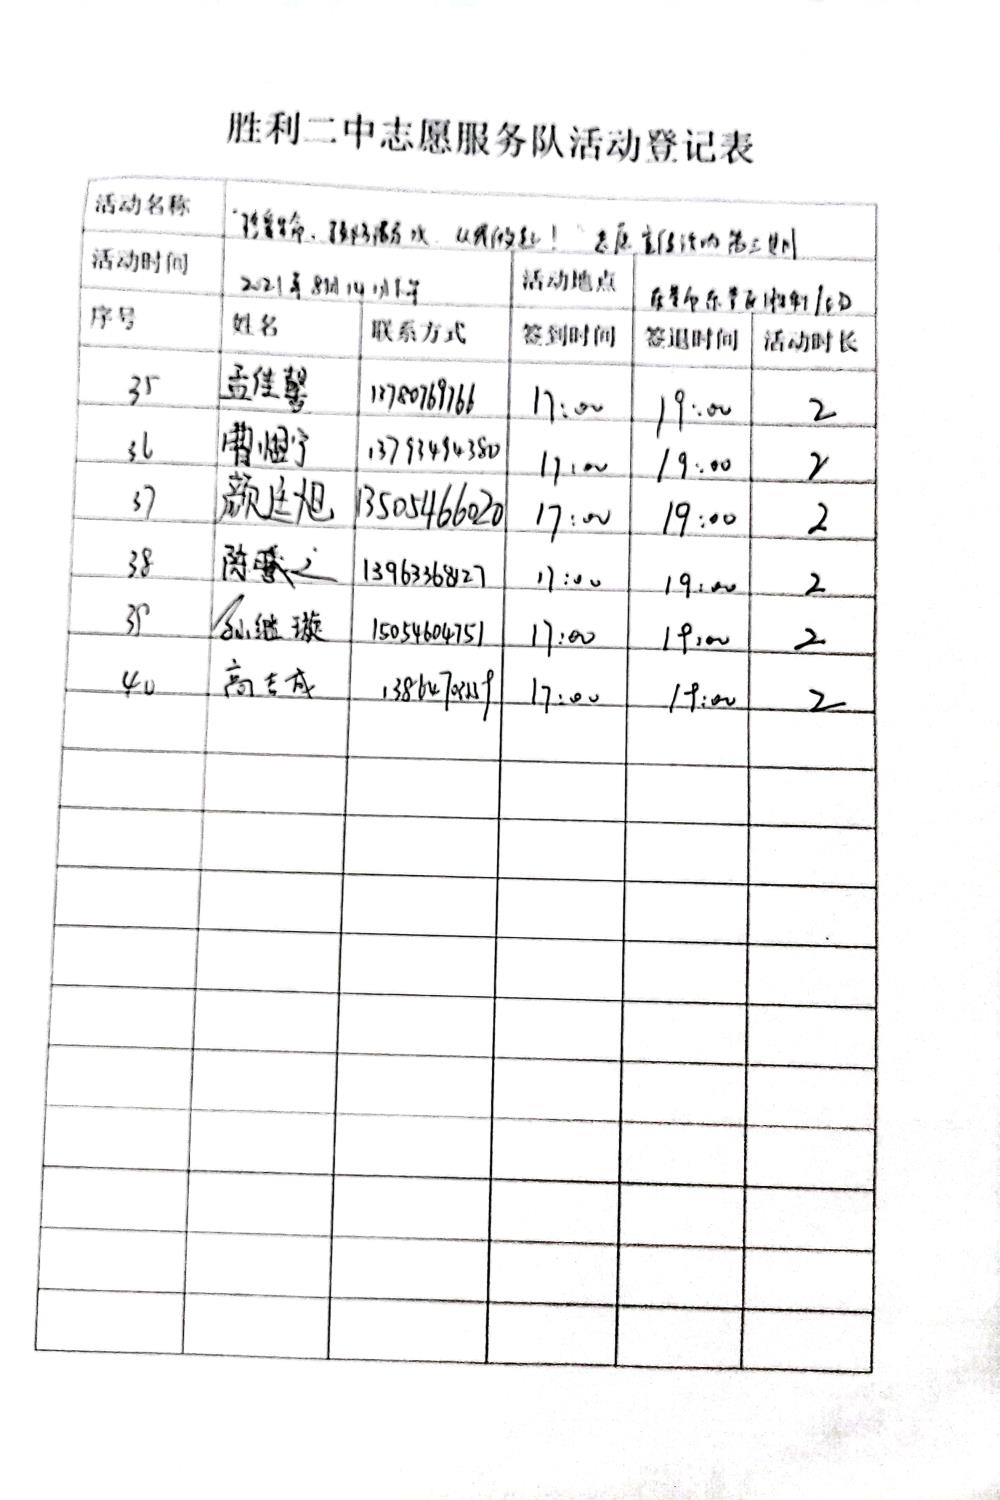 胜利二中志愿服务队活动登记表
活动名称 "珍爱生命、预防溺水 从我做起！" 志愿宣传活动 第三期
活动时间 2021年8月14日下午 活动地点 东营市东营区
序号 姓名 联系方式 签到时间 签退时间 活动时长
35 孟佳馨 13780769766 17:00 19:00 2
36 曹煜宁 13793494380 17:00 19:00 2
37 颜廷旭 13505466020 17:00 19:00 2
38 陈 13963368127 17:00 19:00 2
39 孙继璇 15054604751 17:00 19:00 2
40 高志成 17:00 19:00 2